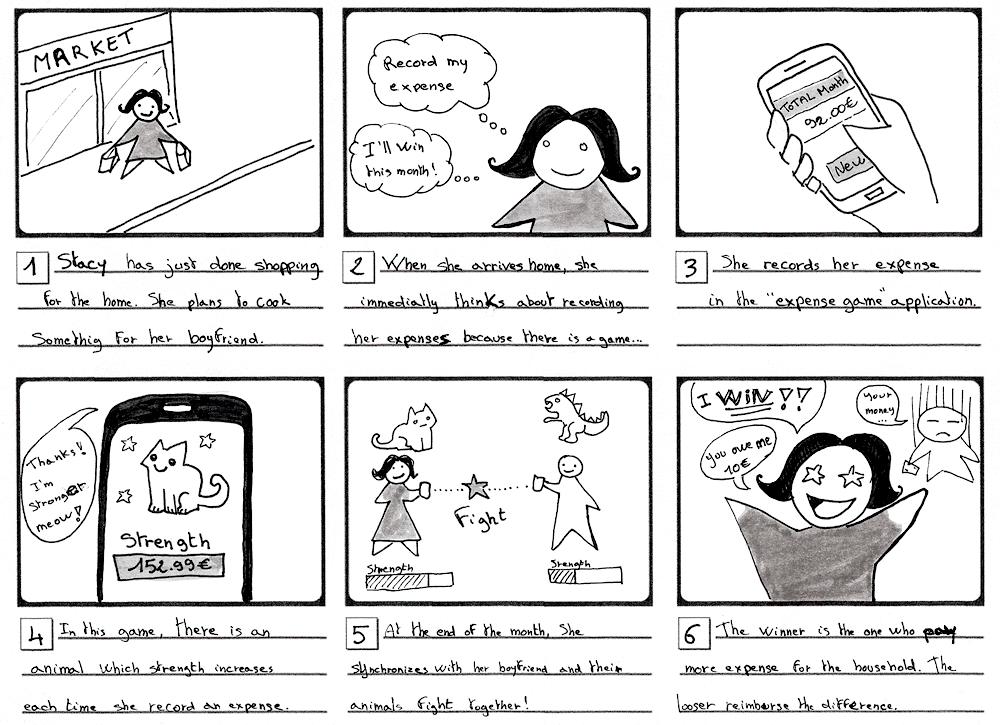 MARKET
1 Stacy has just done shopping
for the home. She plans to cook
Somethig for her boyfriend.
Record my
expense
I'll win
this month!
2 When she arrives home, she
immediatly thinks about recording
her expenses because there is a game...
TOTAL Month
92.00€
New
3 She records her expense
in the "expense game" application.
Thanks!
I'm
stronger
meow!
Strength
152.99€
4 In this game, there is an
animal which strength increases
each time she record an expense.
Fight
Strength
Strength
5 At the end of the month, She
synchronizes with her boyfriend and their
animals fight together!
I WIN !!
You owe me
10€
your
money...
6 The winner is the one who pay
more expense for the household. The
looser reimburse the difference.